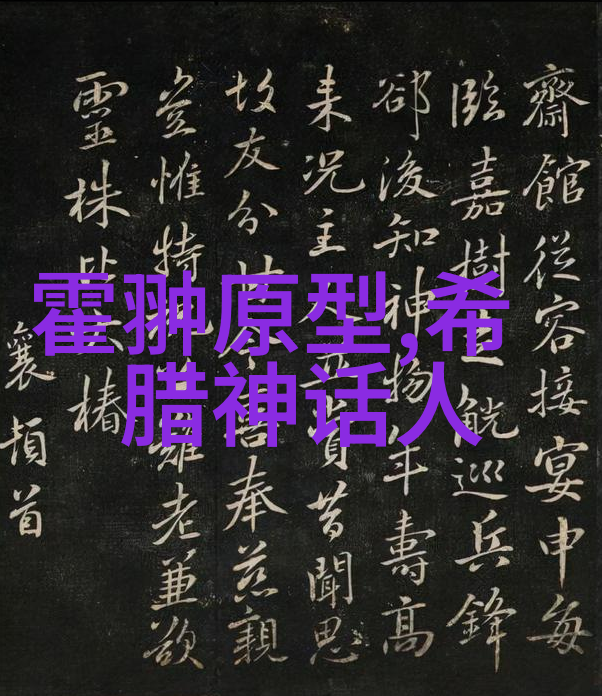 霍翀原型,希
腊神话人
齋館從容接宴申每
臨嘉樹觥巡兵鋒
郤後知神物年壽高
来況主聞思
故友分奉慈親
豈惟特難老兼欲
靈株椿
襄頓首